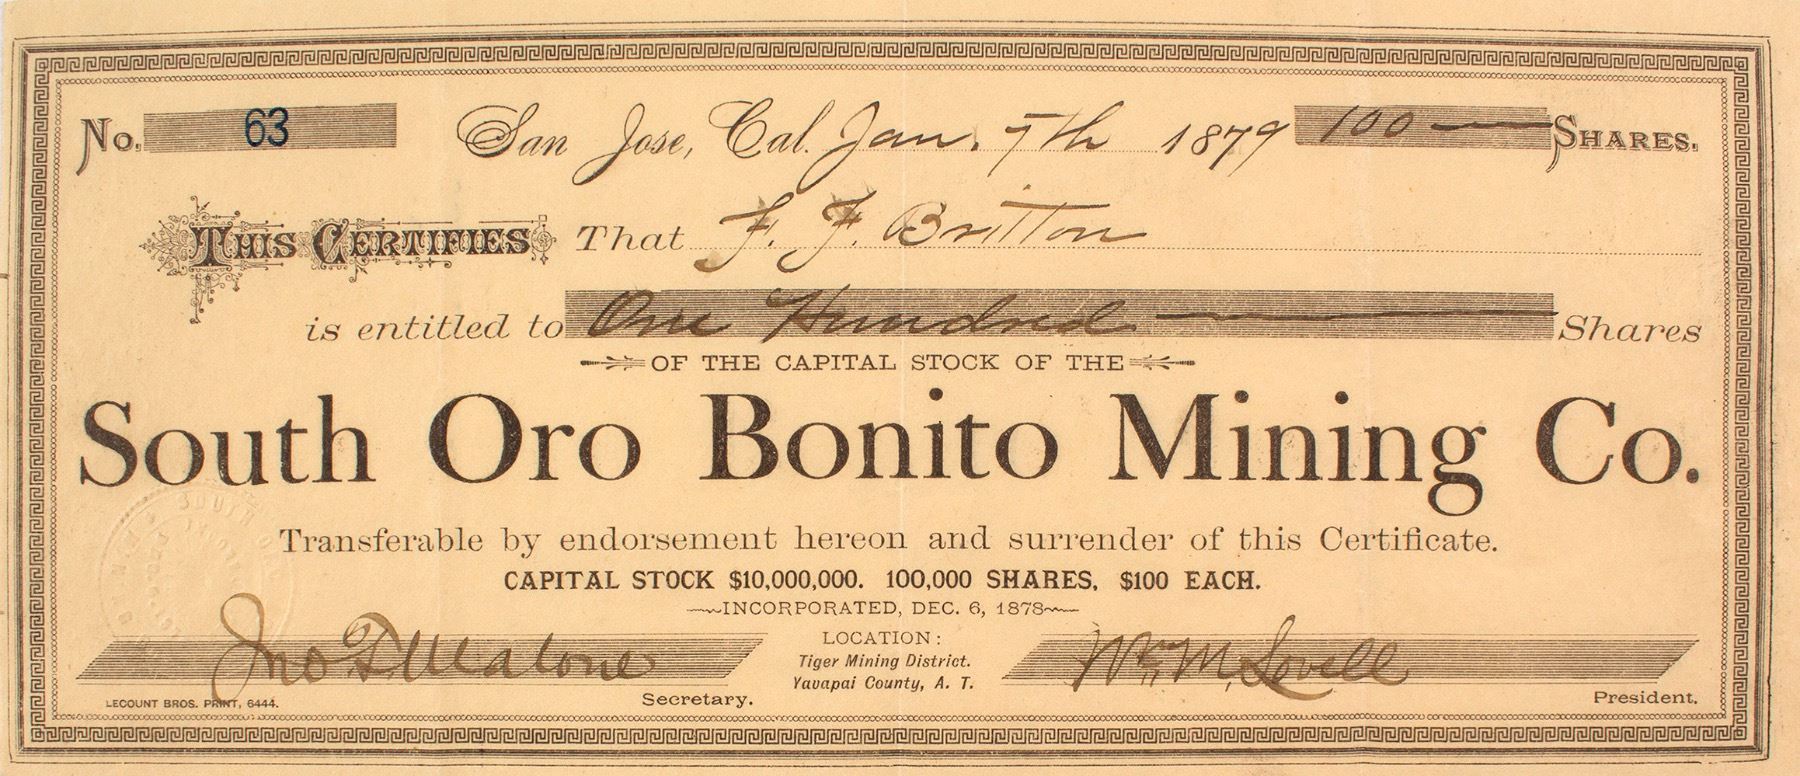 No. 63 San Jose, Cal. Jan. 7th 1879 100 SHARES.
THIS CERTIFIES That F. F. Britton
is entitled to One Hundred Shares
OF THE CAPITAL STOCK OF THE
South Oro Bonito Mining Co.
Transferable by endorsement hereon and surrender of this Certificate.
CAPITAL STOCK $10,000,000. 100,000 SHARES, $100 EACH.
INCORPORATED, DEC. 6, 1878
LOCATION:
Tiger Mining District.
Yavapai County, A. T.
Jno T Malone
Wm M. Lovell
LECOUNT BROS. PRINT, 6444.
Secretary.
President.
SOUTH ORO